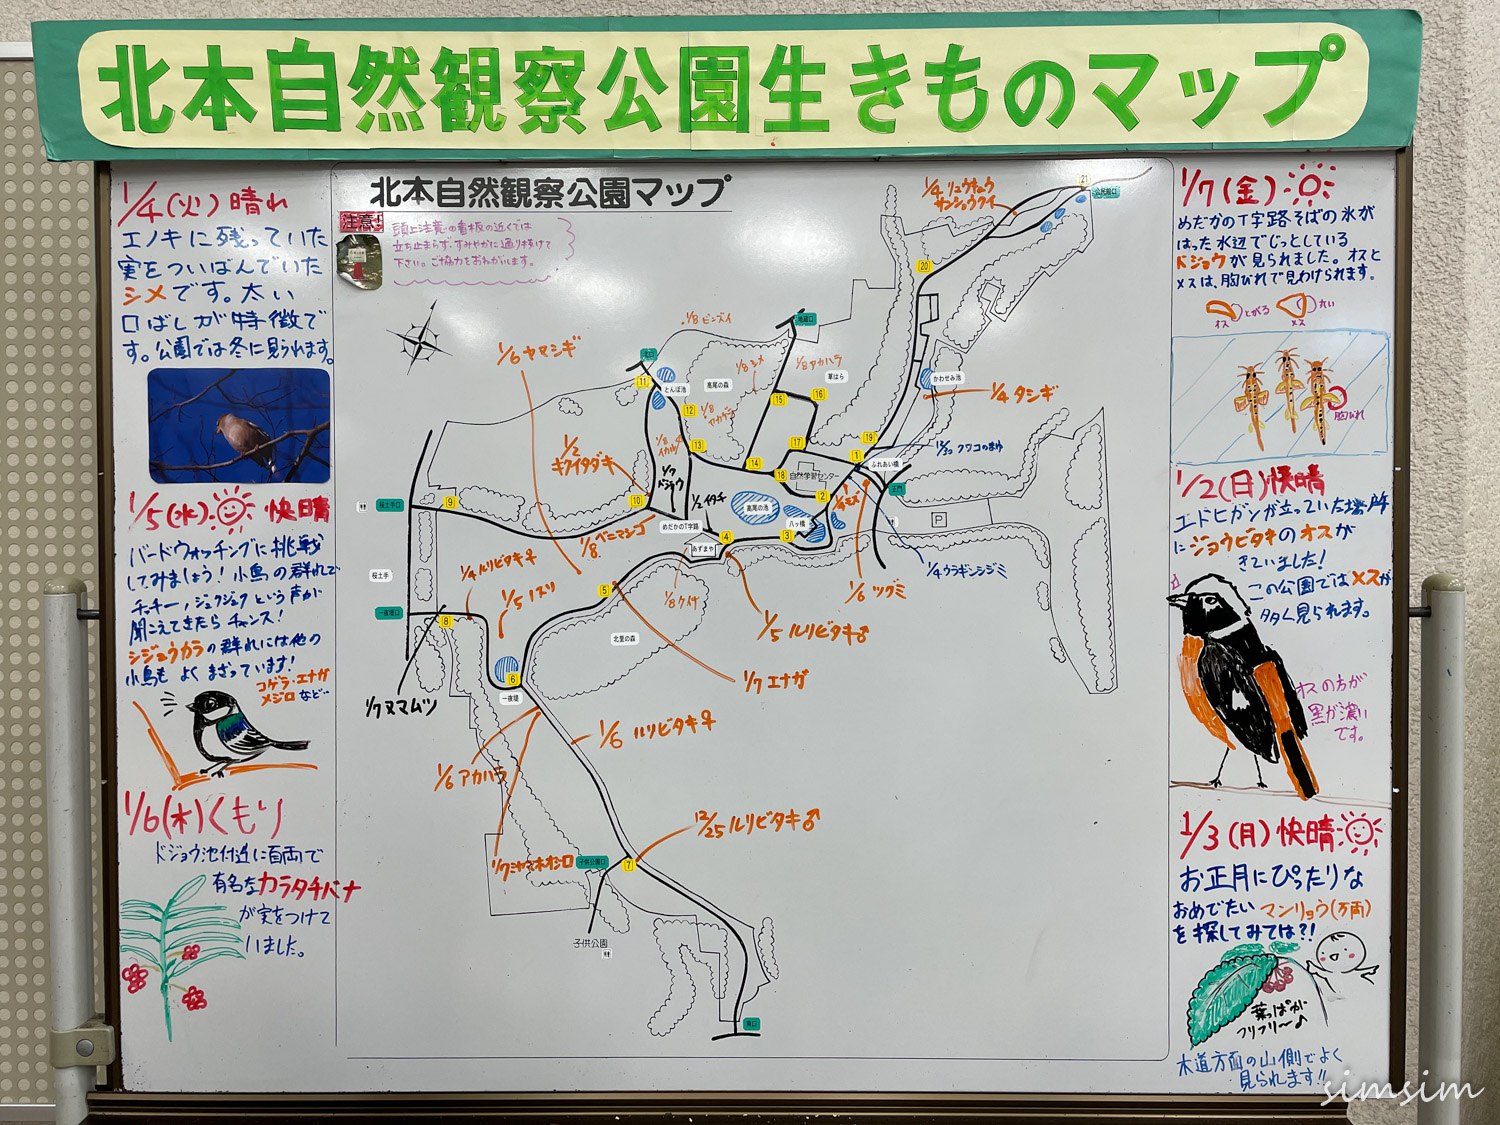 北本自然観察公園生きものマップ
1/4(火)晴れ
エノキに残っていた
実をついばんでいた
シメです。太い
口ばしが特徴で
す。公園では冬に見られます。
1/5(水) 快晴
バードウォッチングに挑戦
してみましょう!小鳥の群れで
チッチー,ジュクジュクという声が
聞こえてきたらチャンス!
シジュウカラの群れには他の
小鳥もよくまざっています!
コゲラ・エナガ
メジロなど…
1/6(木)くもり
ドジョウ池付近に百両で
有名なカラタチバナ
が実をつけて
いました。
北本自然観察公園マップ
注意!
頭上注意の看板の近くでは
立ち止まらず、すみやかに通り抜けて
下さい。ご協力をおねがいします。
1/4 リュウキュウ
サンショウクイ
21
公民館口
20
1/8 ビンズイ
1/6 ヤマシギ
北口
11
とんぼ池
高尾の森
1/8 シメ
1/8 アカハラ
草はら
かわせみ池
1/4 タシギ
12
15
16
13
17
19
12/30 クワコのまゆ
1/2
キクイタダキ
1/7
ドジョウ
14
18
自然学習センター
1
ふれあい橋
正門
桜土手口
9
10
1/2 イタチ
高尾の池
2
八ッ橋
3
P
めだかのT字路
1/8 ベニマシコ
あずまや
4
桜土手
1/4 ルリビタキ♀
1/5 ノスリ
5
1/6 ツグミ
1/4 ウラギンシジミ
一夜堤口
8
北里の森
1/5 ルリビタキ♂
6
一夜堤
1/7 エナガ
1/7 ヌマムツ
1/6 ルリビタキ♀
1/6 アカハラ
12/25 ルリビタキ♂
子供公園口
7
子供公園
南口
1/7(金)
めだかのT字路そばの氷が
はった水辺でじっとしている
ドジョウが見られました。オスと
メスは、胸びれで見わけられます。
オス とがる
メス 丸い
胸びれ
1/2(日)快晴
エドヒガンが立っていた場所
にジョウビタキのオスが
きていました!
この公園ではメスが
多く見られます。
オスの方が
黒が濃い
です。
1/3(月)快晴
お正月にぴったりな
おめでたいマンリョウ(万両)
を探してみては?!
葉っぱが
フリフリ〜♪
木道方面の山側でよく
見られます!!
simsim